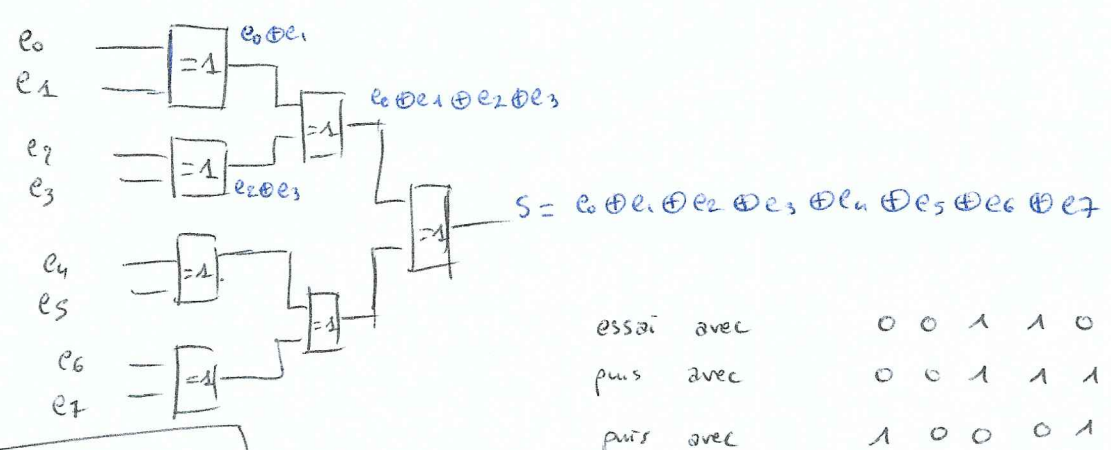 e0
e1
=1
e0⊕e1
e2
e3
=1
e2⊕e3
=1
e0⊕e1⊕e2⊕e3
e4
e5
=1
e6
e7
=1
=1
=1
S = e0⊕e1⊕e2⊕e3⊕e4⊕e5⊕e6⊕e7
essai avec 0 0 1 1 0
puis avec 0 0 1 1 1
puis avec 1 0 0 0 1